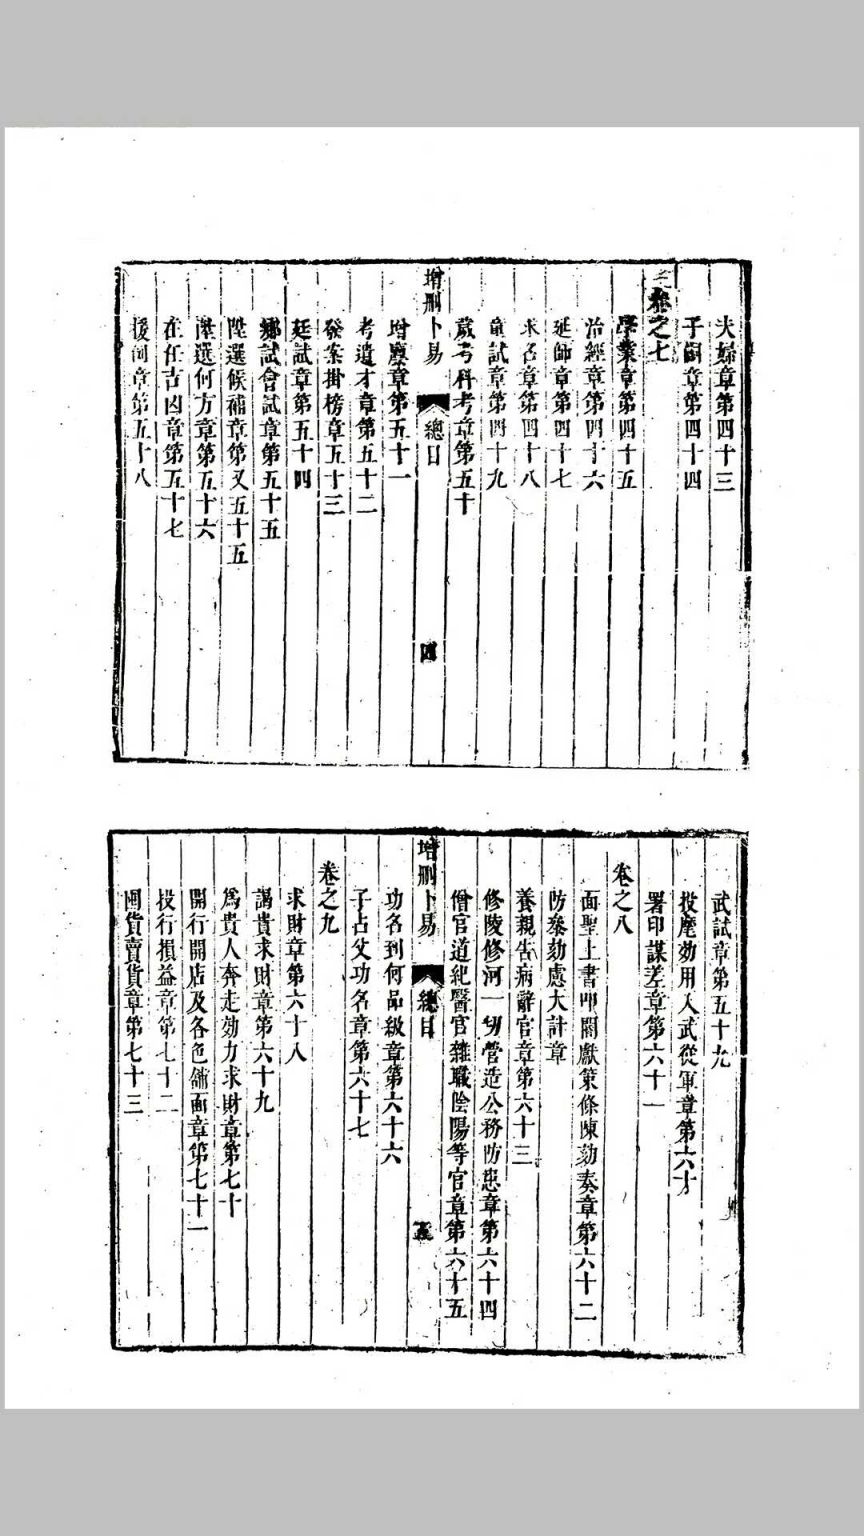 夫婦章第四十三
子嗣章第四十四
卷之七
學業章第四十五
治經章第四十六
延師章第四十七
求名章第四十八
童試章第四十九
歲考科考章第五十
增刪卜易 總目 四
增廩章第五十一
考遺才章第五十二
發案掛榜章五十三
廷試章第五十四
鄉試會試章第五十五
陞選候補章第又五十五
陞選何方章第五十六
在任吉凶章第五十七
後章第五十八
武試章第五十九
投麾効用入武從軍章第六十
署印謀差章第六十一
卷之八
面聖上書叩閽獻策條陳劾奏章第六十二
防參劾慮大計章
養親告病辭官章第六十三
修陵修河一切營造公務防患章第六十四
僧官道紀醫官雜職陰陽等官章第六十五
增刪卜易 總目 五
功名到何品級章第六十六
子占父功名章第六十七
卷之九
求財章第六十八
謁貴求財章第六十九
為貴人奔走効力求財章第七十
開行開店及各色舖面章第七十一
投行損益章第七十二
囤貨賣貨章第七十三